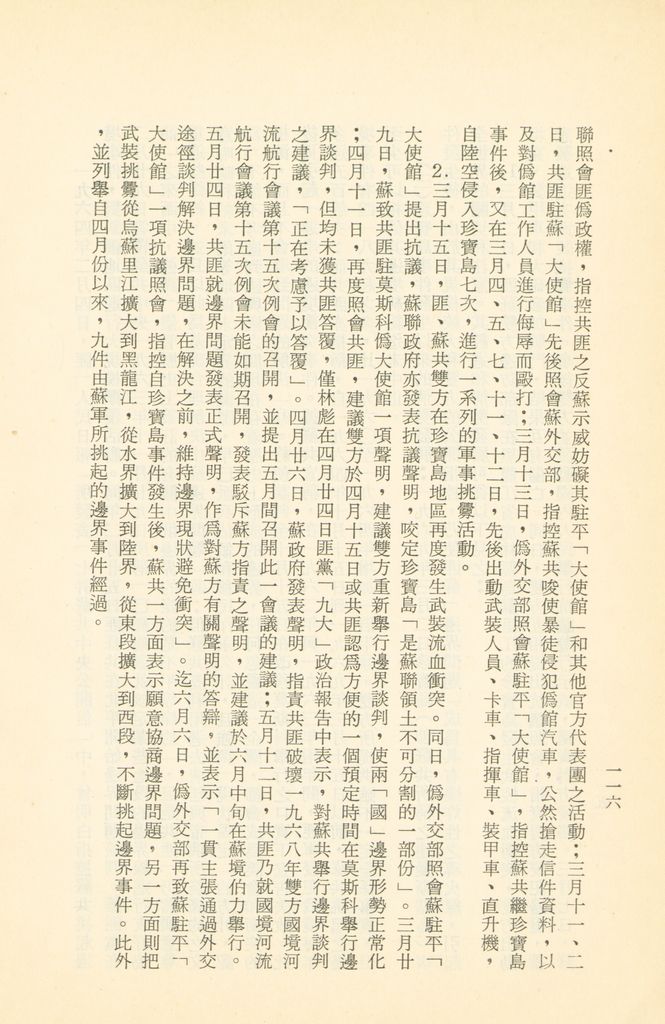 聯照會匪僞政權，指控共匪之反蘇示威妨礙其駐平「大使館」和其他官方代表團之活動；三月十一、二
日，共匪駐蘇「大使館」先後照會蘇外交部，指控蘇共唆使暴徒侵犯僞館汽車，公然搶走信件資料，以
及對僞館工作人員進行侮辱而毆打；三月十三日，僞外交部照會蘇駐平「大使館」，指控蘇共繼珍寶島
事件後，又在三月四、五、七、十一、十二日，先後出動武裝人員、卡車、指揮車、裝甲車、直升機，
自陸空侵入珍寶島七次，進行一系列的軍事挑釁活動。
2.三月十五日，匪、蘇共雙方在珍寶島地區再度發生武裝流血衝突。同日，僞外交部照會蘇駐平「
大使館」提出抗議，蘇聯政府亦發表抗議聲明，咬定珍寶島「是蘇聯領土不可分割的一部份」。三月廿
九日，蘇致共匪駐莫斯科僞大使館一項聲明，建議雙方重新舉行邊界談判，使兩「國」邊界形勢正常化
；四月十一日，再度照會共匪，建議雙方於四月十五日或共匪認爲方便的一個預定時間在莫斯科舉行邊
界談判，但均未獲共匪答覆，僅林彪在四月廿四日匪黨「九大」政治報告中表示，對蘇共舉行邊界談判
之建議，「正在考慮予以答覆」。四月廿六日，蘇政府發表聲明，指責共匪破壞一九六八年雙方國境河
流航行會議第十五次例會的召開，並提出五月間召開此一會議的建議；五月十二日，共匪乃就國境河流
航行會議第十五次例會未能如期召開，發表駁斥蘇方指責之聲明，並建議於六月中旬在蘇境伯力舉行。
五月廿四日，共匪就邊界問題發表正式聲明，作爲對蘇方有關聲明的答辯，並表示「一貫主張通過外交
途徑談判解決邊界問題，在解決之前，維持邊界現狀避免衝突」。迄六月六日，僞外交部再致蘇駐平「
大使館」一項抗議照會，指控自珍寶島事件發生後，蘇共一方面表示願意協商邊界問題，另一方面則把
武裝挑釁從烏蘇里江擴大到黑龍江，從水界擴大到陸界，從東段擴大到西段，不斷挑起邊界事件。此外
，並列舉自四月份以來，九件由蘇軍所挑起的邊界事件經過。
一一六